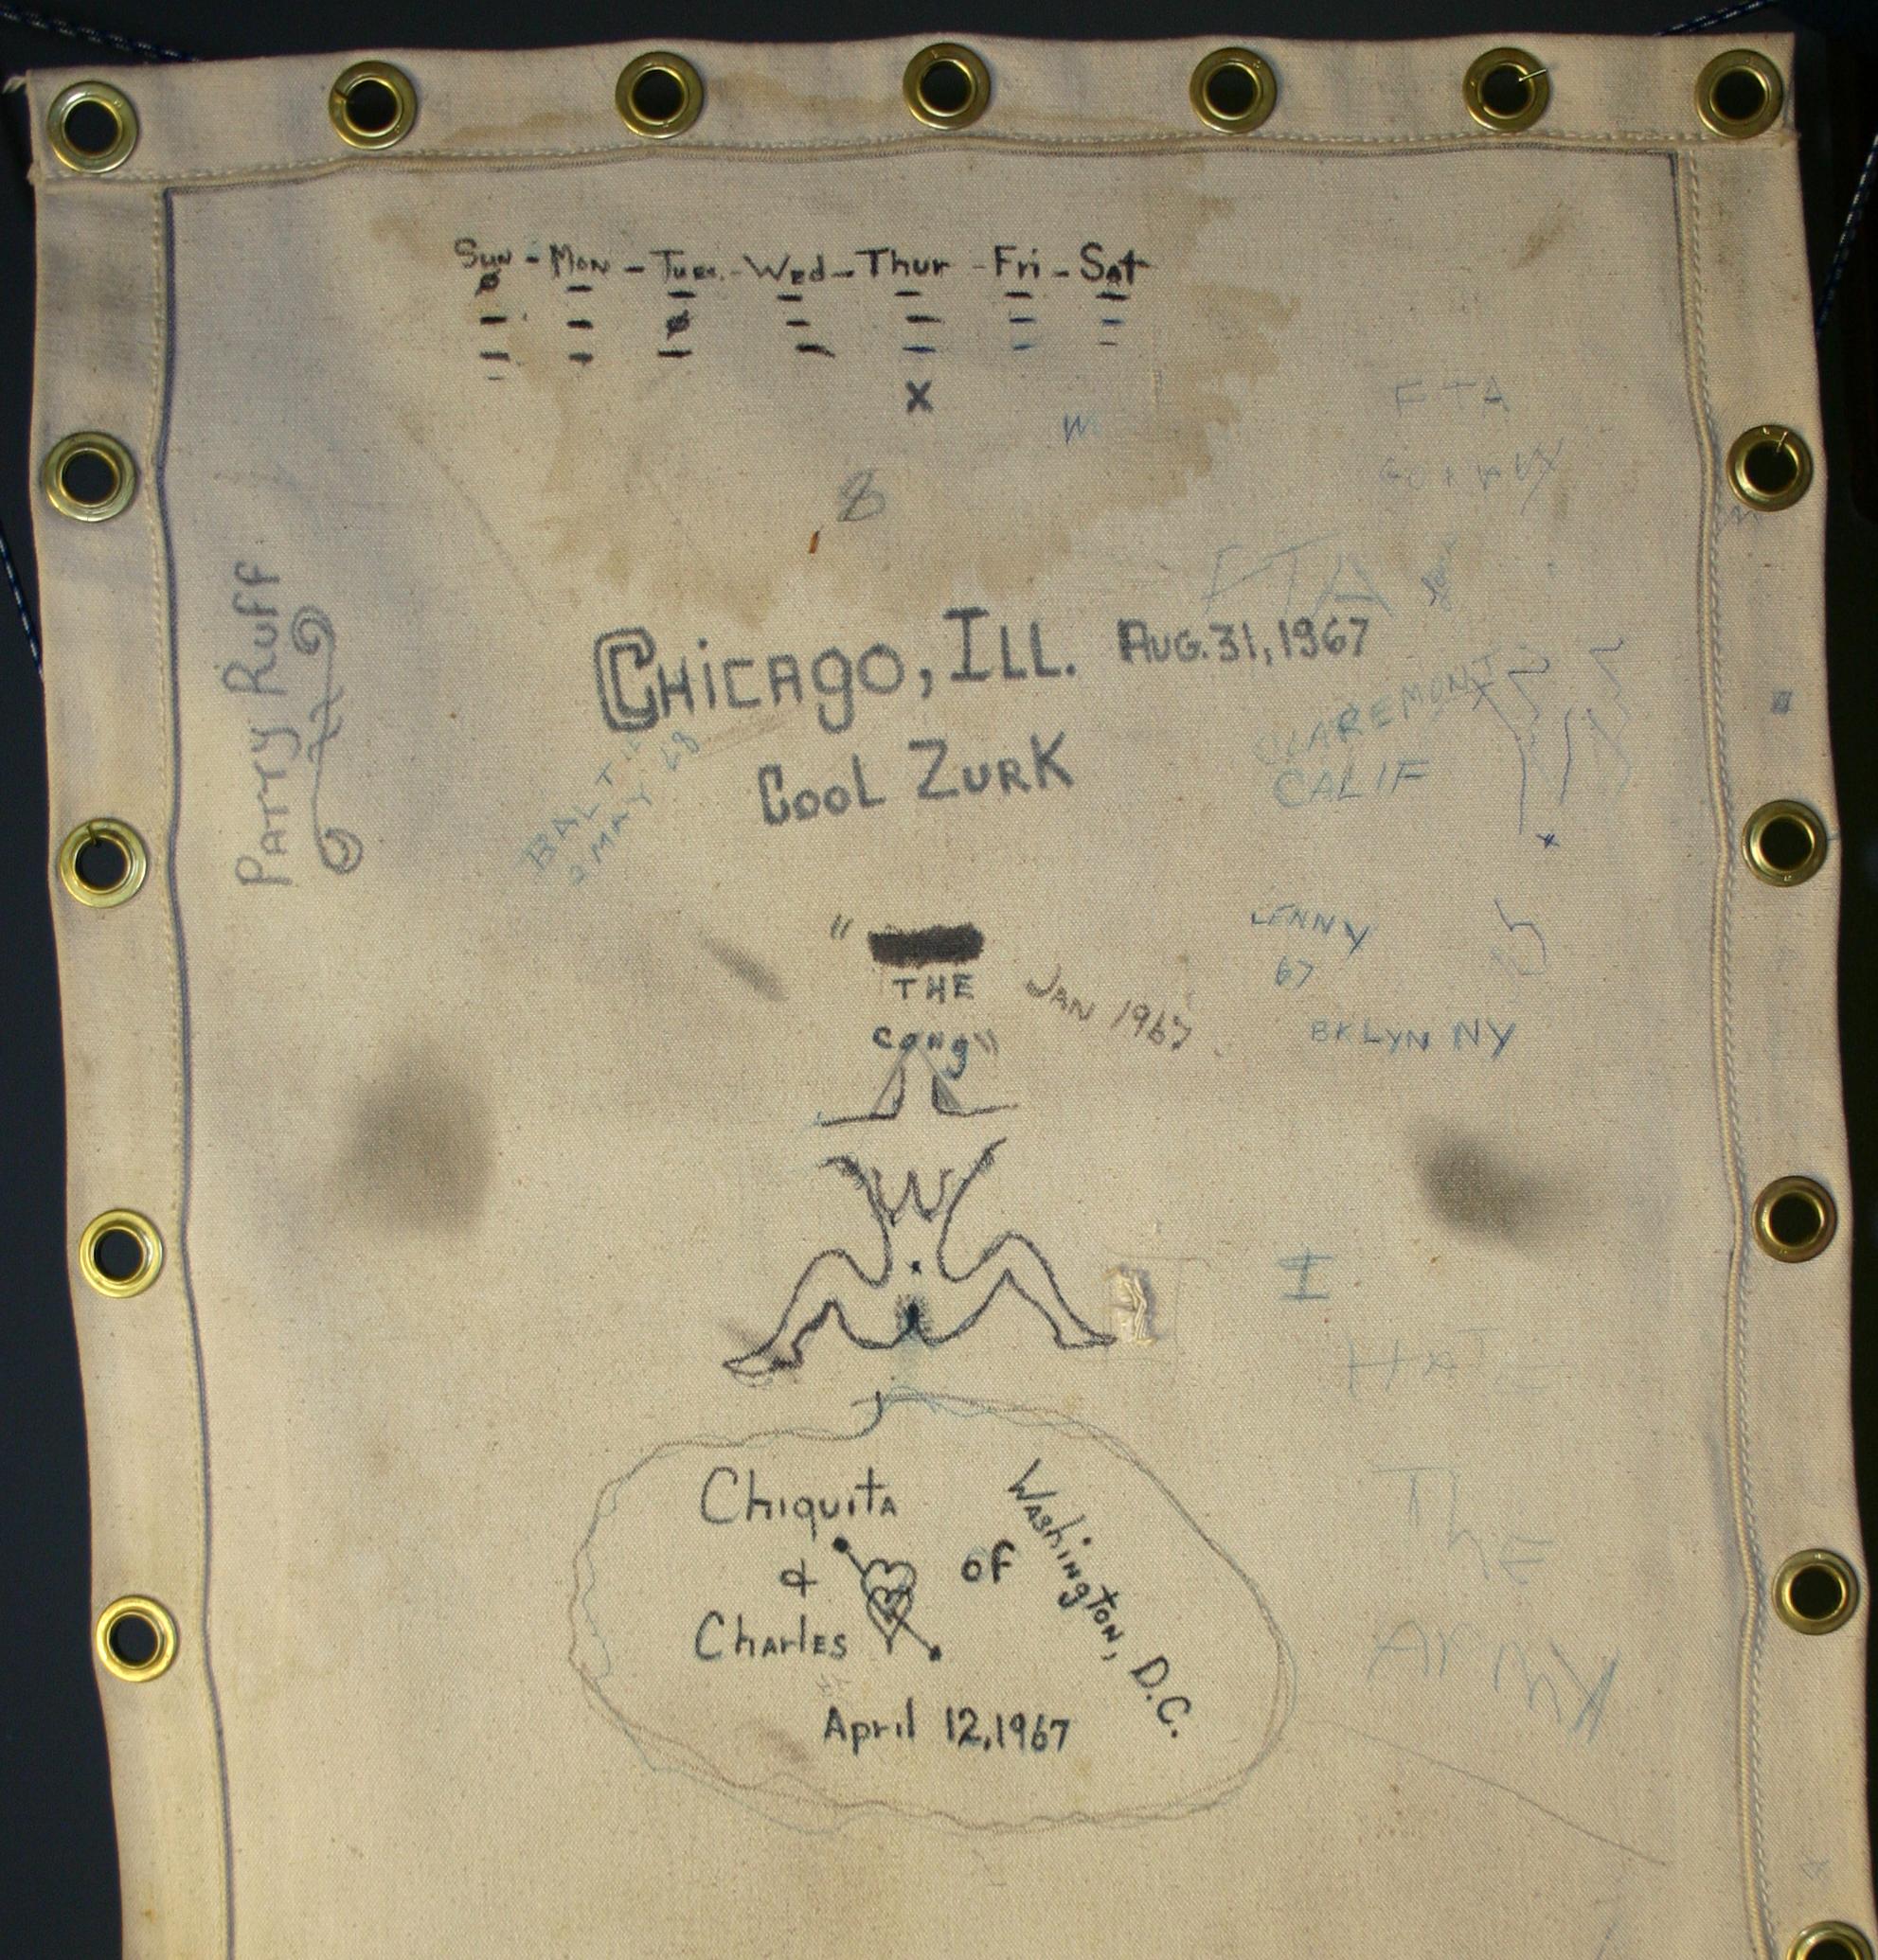 Sun - Mon - Tues. - Wed - Thur - Fri - Sat
X
FTA
W
8
FTA
Patty Ruff
Chicago, Ill. Aug. 31, 1967
Cool Zurk
CLAREMONT
CALIF
BALT
2 MAY 68
LENNY
67
BKLYN NY
"
THE
Cong"
JAN 1967
I
HATE
ThE
ArmY
Chiquita
&
Charles
of
Washington, D.C.
April 12, 1967